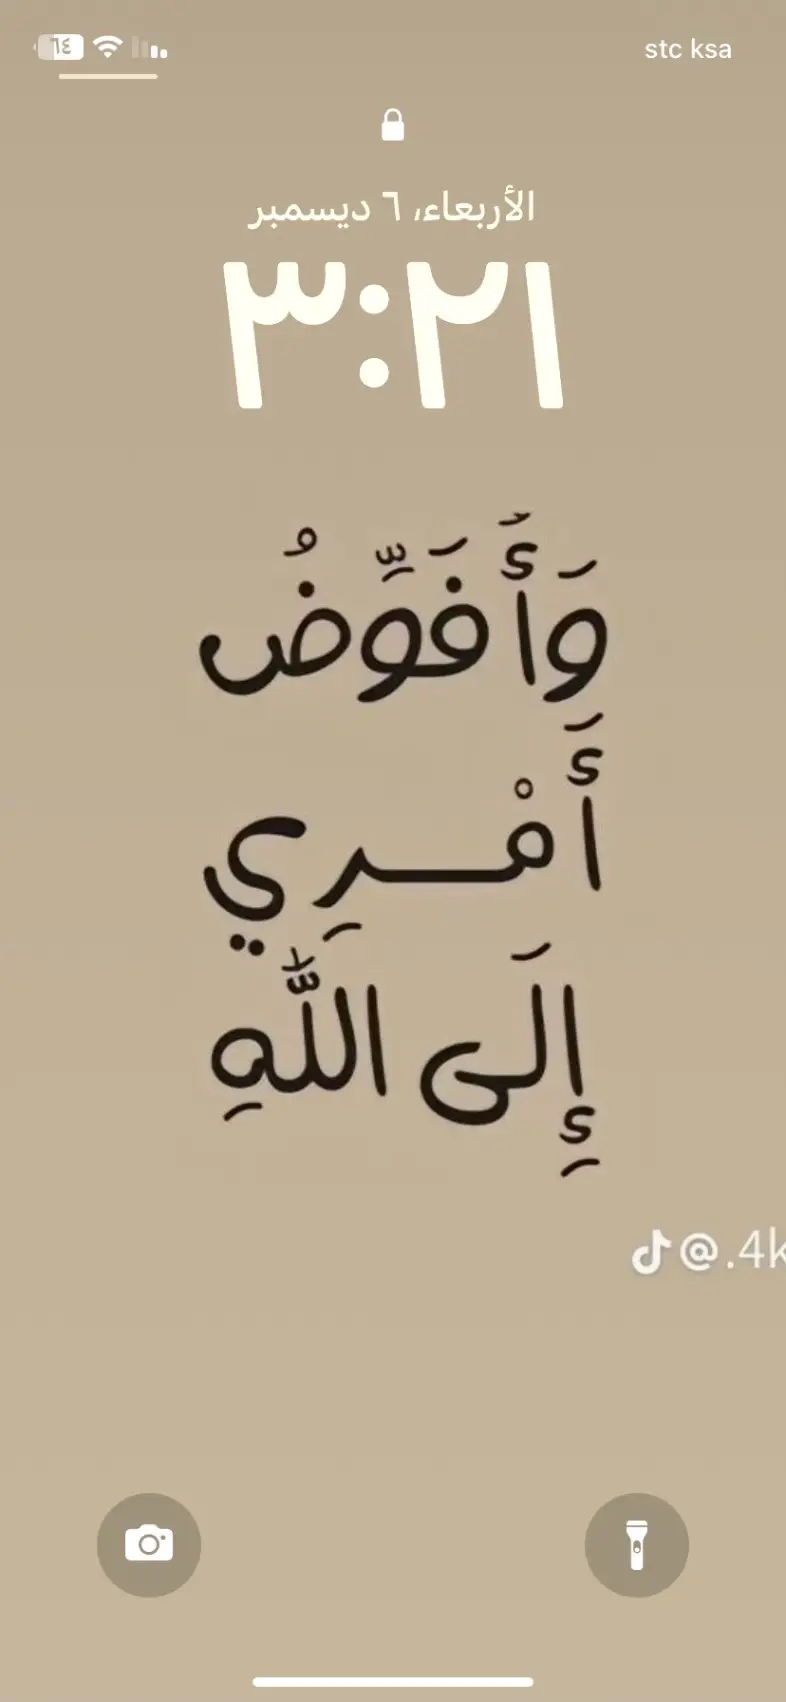 ٦٤
stc ksa
الأربعاء، ٦ ديسمبر
٣:٢١
وَأُفَوِّضُ
أَمْـــرِي
إِلَى اللَّهِ
@.4k